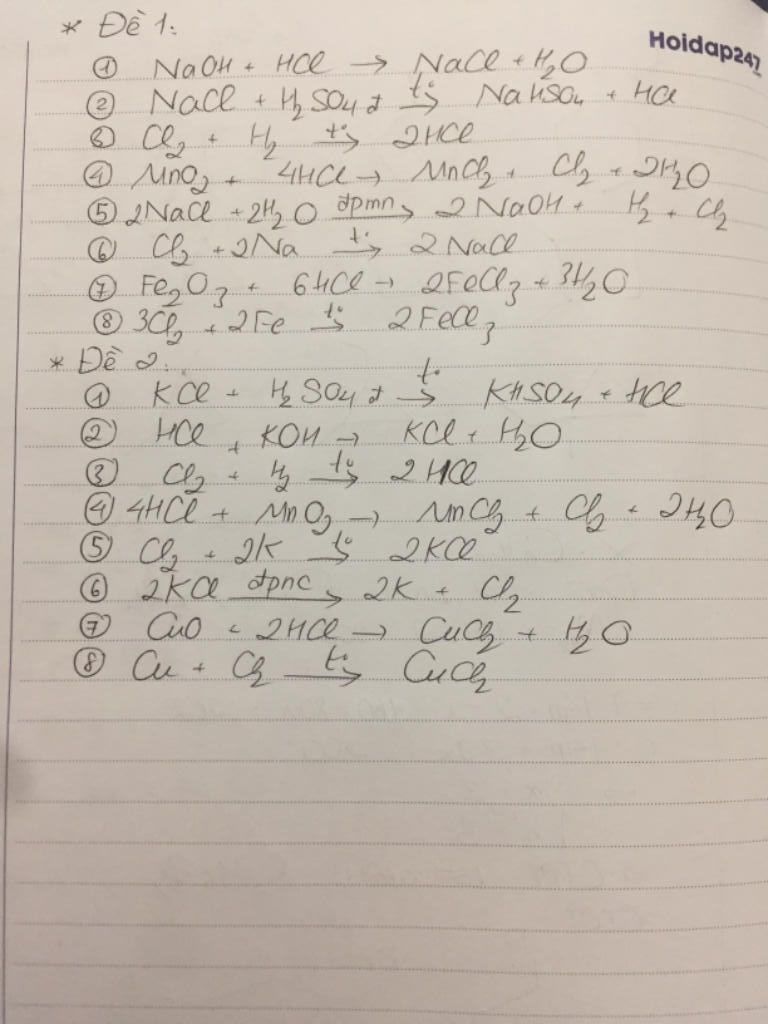 * Đề 1:
Hoidap247
① NaOH + HCl → NaCl + H₂O
② NaCl + H₂SO₄ đ t°→ NaHSO₄ + HCl
③ Cl₂ + H₂ t°→ 2HCl
④ MnO₂ + 4HCl → MnCl₂ + Cl₂ + 2H₂O
⑤ 2NaCl + 2H₂O đpmn→ 2NaOH + H₂ + Cl₂
⑥ Cl₂ + 2Na t°→ 2NaCl
⑦ Fe₂O₃ + 6HCl → 2FeCl₃ + 3H₂O
⑧ 3Cl₂ + 2Fe t°→ 2FeCl₃
* Đề 2:
① KCl + H₂SO₄ đ t°→ KHSO₄ + HCl
② HCl + KOH → KCl + H₂O
③ Cl₂ + H₂ t°→ 2HCl
④ 4HCl + MnO₂ → MnCl₂ + Cl₂ + 2H₂O
⑤ Cl₂ + 2K t°→ 2KCl
⑥ 2KCl đpnc→ 2K + Cl₂
⑦ CuO + 2HCl → CuCl₂ + H₂O
⑧ Cu + Cl₂ t°→ CuCl₂